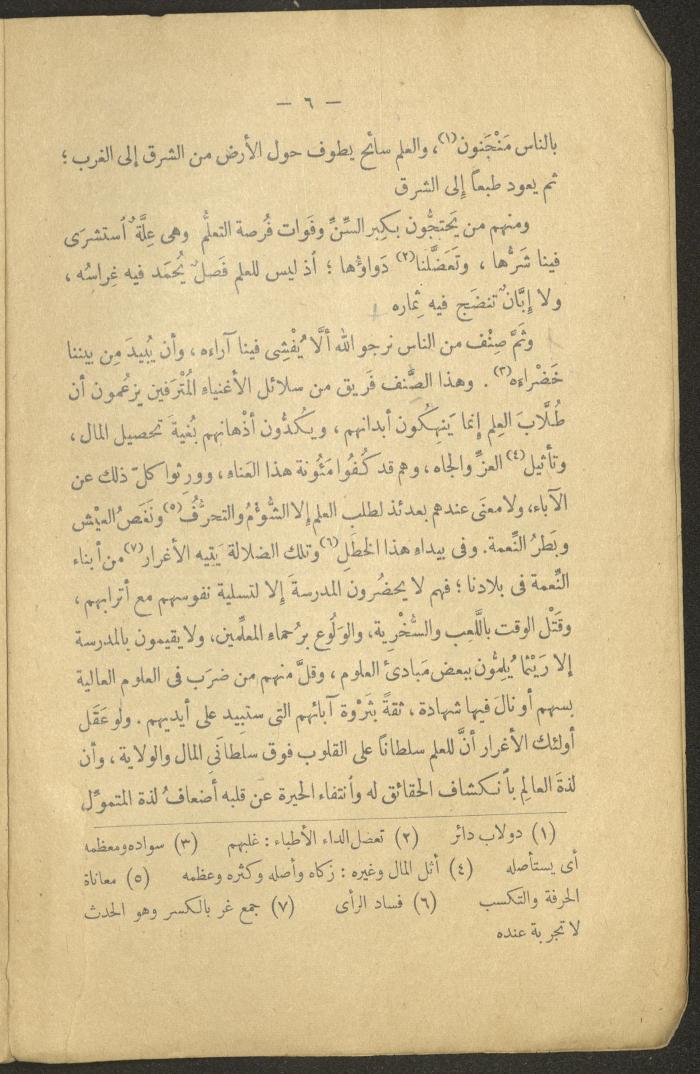 — ٦ —
بالناس مَنْجَنون(١)، والعلم سائح يطوف حول الأرض من الشرق إلى الغرب ؛
ثم يعود طبعاً إلى الشرق
ومنهم من يَحتجُّون بكِبر السِّنِّ وفَوات فُرصة التعلُّم وهى عِلَّةٌ ٱستشرَى
فينا شَرُّها ، وتَعَضَّلنا(٢) دَواؤها ؛ أذ ليس للعلم فَصلٌ يُحمَد فيه غِراسُه ،
ولا إِبَّانٌ تنضَج فيه ثِماره
وثَمَّ صِنْف من الناس نرجو الله ألَّا يُفْشِى فينا آراءه ، وأن يُبيدَ مِن بيننا
خَضْراءه(٣) . وهذا الصِّنف فَريق من سلائل الأغنياءِ المُتْرَفين يزعُمون أن
طُلَّابَ العِلم إنما يَنهِكُون أبدانهم ، ويكدُّون أذْهانهم بُغيةَ تحصيل المال ،
وتأثيل(٤) العزِّ والجاه ، وهم قد كُفُوا مَئُونة هذا العَناءِ ، وورثوا كلّ ذلك عن
الآباء، ولا معنَى عندهم بعدئذ لطلب العلم إلا الشُّؤْمُ والتحرُّفُ(٥) ونَغَصُ العيْش
وبَطَرُ النِّعمة. وفى بيداءِ هذا الخَطَلِ(٦) وتلك الضلالة يَتِيه الأغرار(٧) من أبناء
النِّعمة فى بلادنا ؛ فهم لا يحضُرون المدرسةَ إلا لتسلية نفوسهم مع أترابهم ،
وقَتْل الوقت باللَّعب والسُّخْرية ، والوَلُوع برُحماءِ المعلِّمين، ولا يقيمون بالمدرسة
إلا رَيْثما يُلِمُّون ببعض مَبادئ العلوم ، وقلَّ منهم من ضرَب فى العلوم العالية
بسهم أو نالَ فيها شهادة ، ثقةً بثَرْوة آبائهم التى ستبِيد على أيديهم . ولو عَقَل
أولئك الأغرار أنَّ للعلم سلطانًا على القلوب فوق سلطانَيِ المال والولاية ، وأن
لذةَ العالِمِ بٱنكشاف الحقائق له وٱنتفاء الحيرة عن قلبه أضعافُ لذة المتموِّل
(١) دولاب دائر (٢) تعضل الداء الأطباء : غلبهم (٣) سواده ومعظمه
أى يستأصله (٤) أثل المال وغيره : زكاه وأصله وكثره وعظمه (٥) معاناة
الحرفة والتكسب (٦) فساد الرأى (٧) جمع غر بالكسر وهو الحدث
لا تجربة عنده